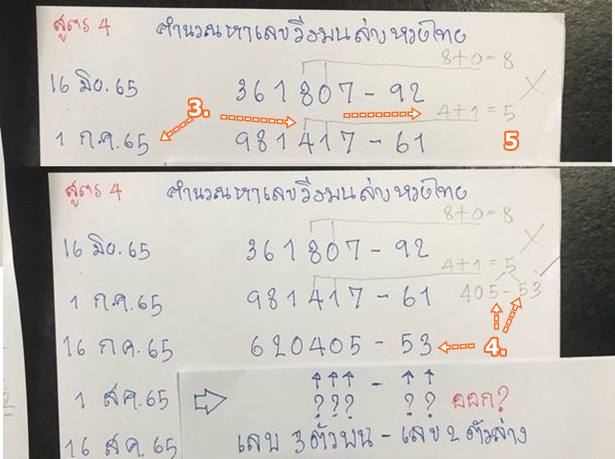 สูตร 4 คำนวณหาเลขวิ่งบนล่างหวยไทย
8+0=8
16 มิย. 65 361807-92
3. 4+1=5
1 ก.ค. 65 981417-61 5
สูตร 4 คำนวณหาเลขวิ่งบนล่างหวยไทย
8+0=8
16 มิย. 65 361807-92
4+1=5
1 ก.ค. 65 981417-61 405-53
16 ก.ค. 65 620405-53 4.
1 ส.ค. 65 ???-?? ออก?
16 ส.ค. 65 เลข 3 ตัวบน-เลข 2 ตัวล่าง
2